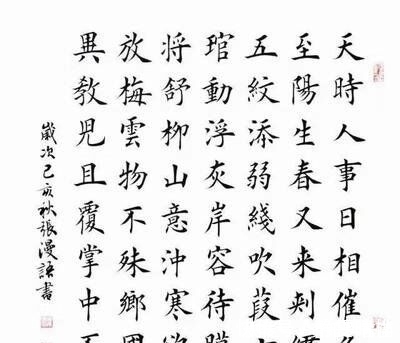 天時人事日相催
至陽生春又來刾
五紋添弱綫吹葭
琯動浮灰岸容待
將舒柳山意沖寒
放梅雲物不殊鄉
異敎兒且覆掌中
歲次己亥秋張漫語書